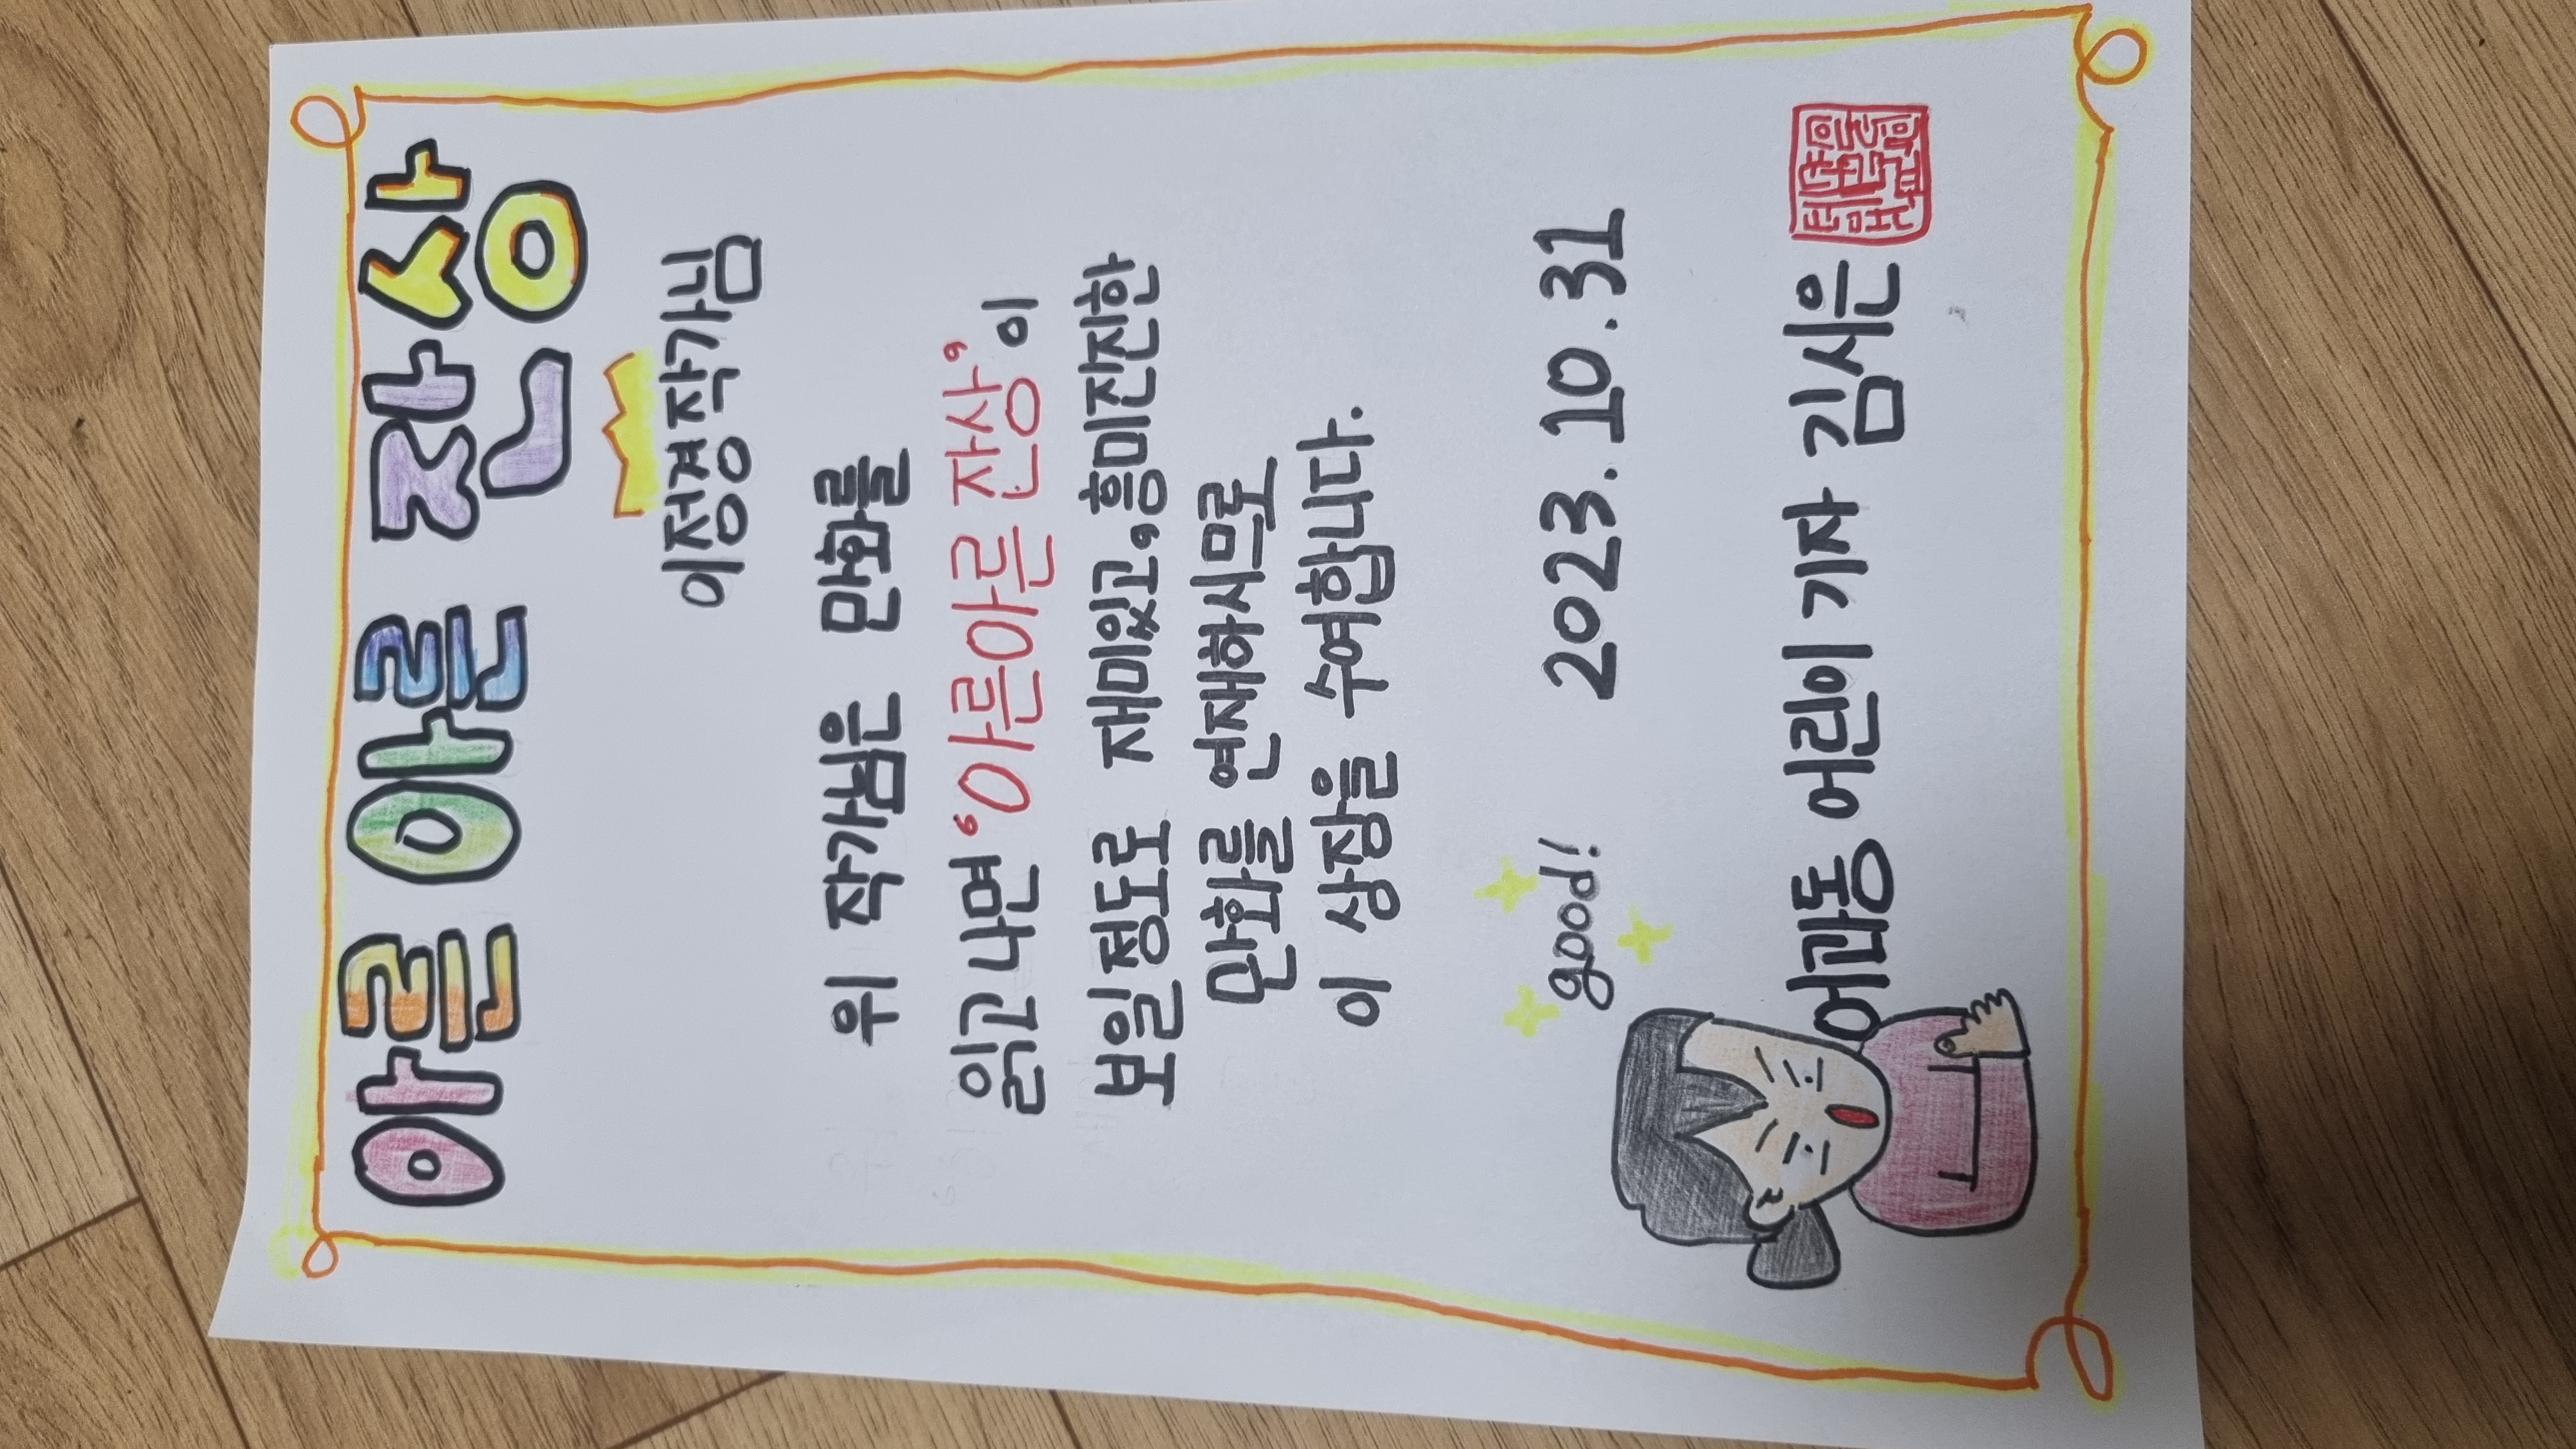 아른 아른 잔상
이정경 작가님
위 작가님은 만화를
읽고나면 '아른아른 잔상'이
보일정도로 재미있고, 흥미진진한
만화를 연재하시므로
이 상장을 수여합니다.
good!
2023.10.31
어과동 어린이 기자 김시은